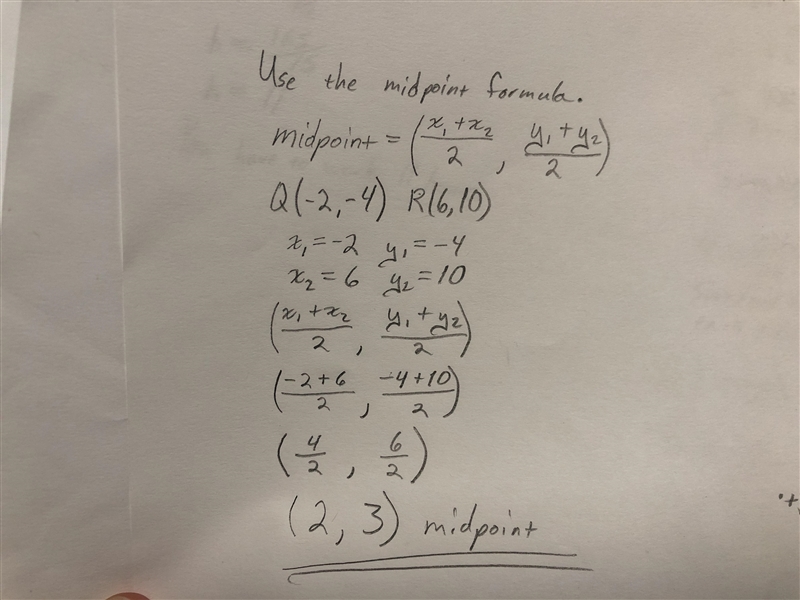 Use the midpoint formula.
midpoint = (x₁+x₂/2, y₁+y₂/2)
Q(-2,-4) R(6,10)
x₁=-2 y₁=-4
x₂=6 y₂=10
(x₁+x₂/2, y₁+y₂/2)
(-2+6/2, -4+10/2)
(4/2, 6/2)
(2,3) midpoint